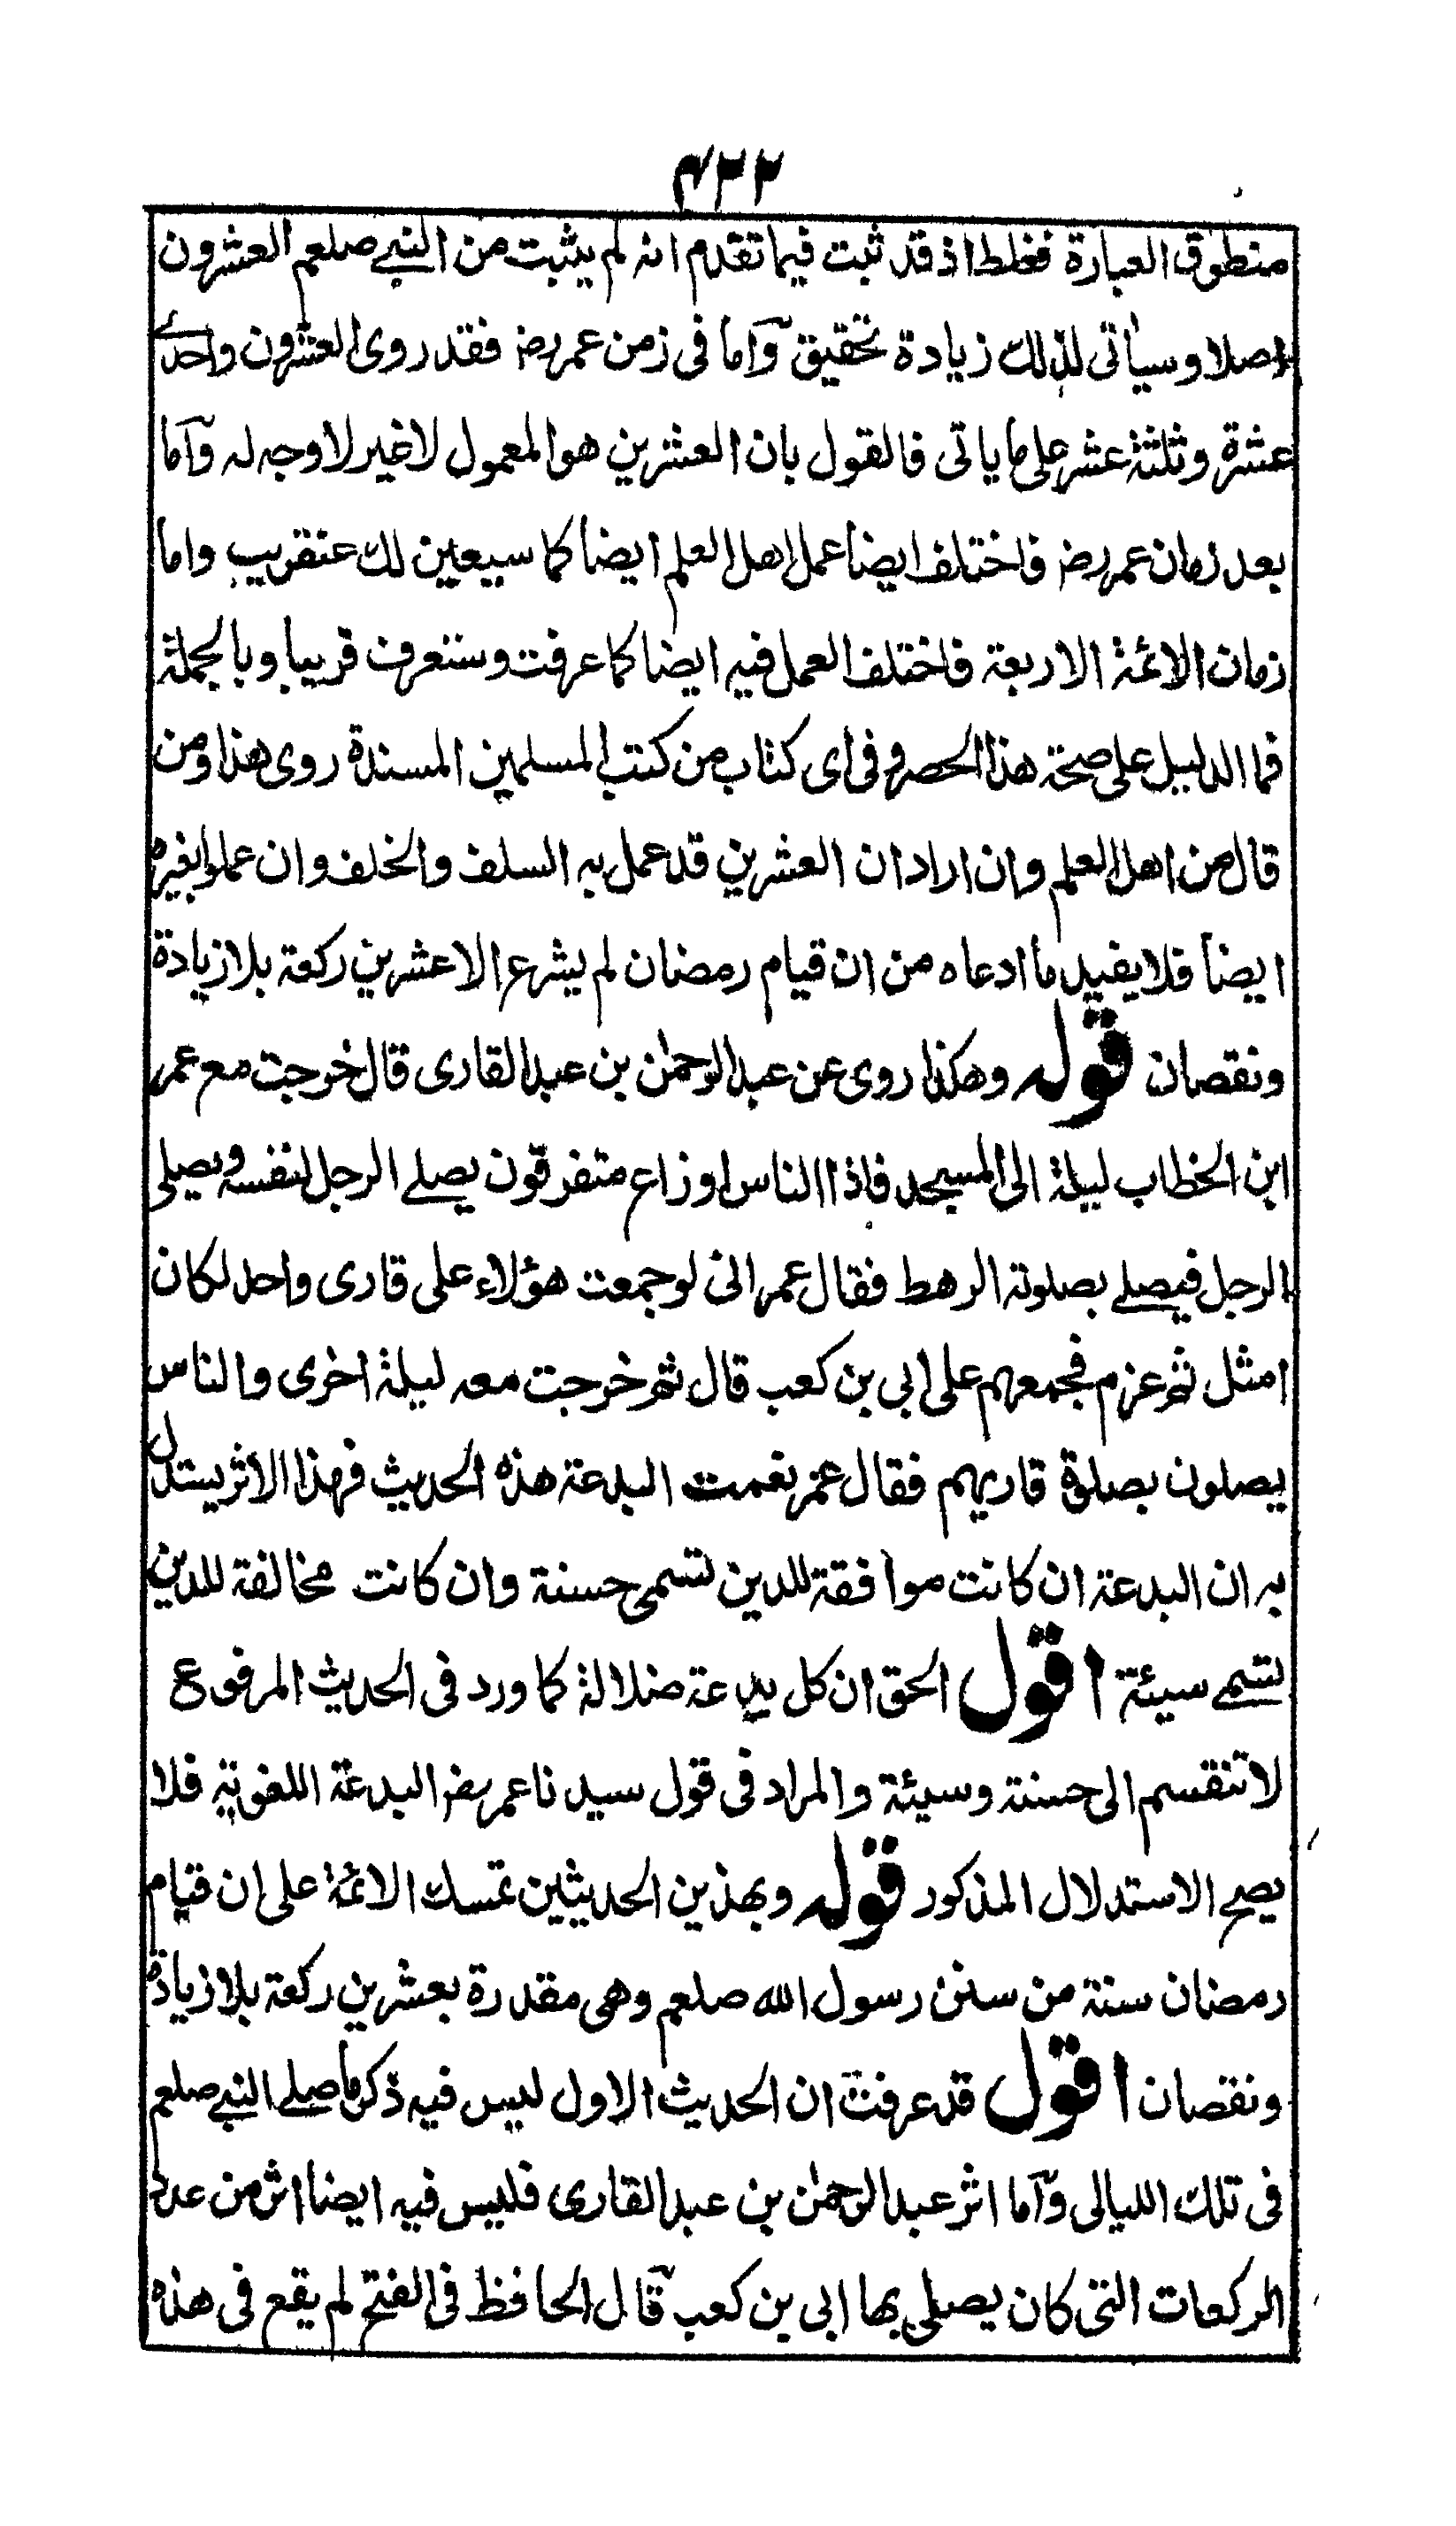 ۴۲۲
منطوق العبارة فغلط اذ قد ثبت فيما تقدم انه لم يثبت من النبي صلعم العشرون
اصلا وسيأتى لذلك زيادة تحقيق وآما فى زمن عمر رضـ فقد روى العشرون واحدے
عشرة وثلثة عشر على ما ياتى فالقول بان العشرين هو المعمول لا غير لا وجه له وآما
بعد زمان عمر رضـ فاختلف ايضا عمل اهل العلم ايضا كما سيعلين لك عنقريب واما
زمان الائمة الاربعة فاختلف العمل فيه ايضا كما عرفت وستعرف قريبا وبالجملة
فما الدليل على صحة هذا الحصر وفى اى كتاب من كتب المسلمين المسندة روى هذا ومن
قال من اهل العلم وان اراد ان العشرين قد عمل به السلف والخلف وان عملوا بغيره
ايضا فلا يفيد ما ادعاه من ان قيام رمضان لم يشرع الا عشرين ركعة بلا زيادة
ونقصان قوله وهكذا روى عن عبد الرحمٰن بن عبد القارى قال خرجت مع عمر
ابن الخطاب ليلة الى المسجد فاذا الناس اوزاع متفرقون يصلے الرجل لنفسه ويصلى
الرجل فيصلے بصلوته الرهط فقال عمر انى لو جمعت هؤلاء على قارى واحد لكان
امثل ثم عزم فجمعهم على ابى بن كعب قال ثم خرجت معه ليلة اخرى والناس
يصلون بصلوة قاريهم فقال عمر نعمت البدعة هذه الحديث فهذا الاثر يستدل
به ان البدعة ان كانت موافقة للدين تسمى حسنة وان كانت مخالفة للدين
تسمے سيئة اقول الحق ان كل بدعة ضلالة كما ورد فى الحديث المرفوع
لا تنقسم الى حسنة وسيئة والمراد فى قول سيدنا عمر رضـ البدعة اللغوية فلا
يصح الاستدلال المذكور قوله وبهذين الحديثين تمسك الائمة على ان قيام
رمضان سنة من سنن رسول الله صلعم وهى مقدرة بعشرين ركعة بلا زيادة
ونقصان اقول قد عرفت ان الحديث الاول ليس فيه ذكر ما صلے النبے صلعم
فى تلك الليالى وآما اثر عبد الرحمٰن بن عبد القارى فليس فيه ايضا اثر من عدد
الركعات التى كان يصلى بها ابى بن كعب قآل الحافظ فى الفتح لم يقع فى هذه